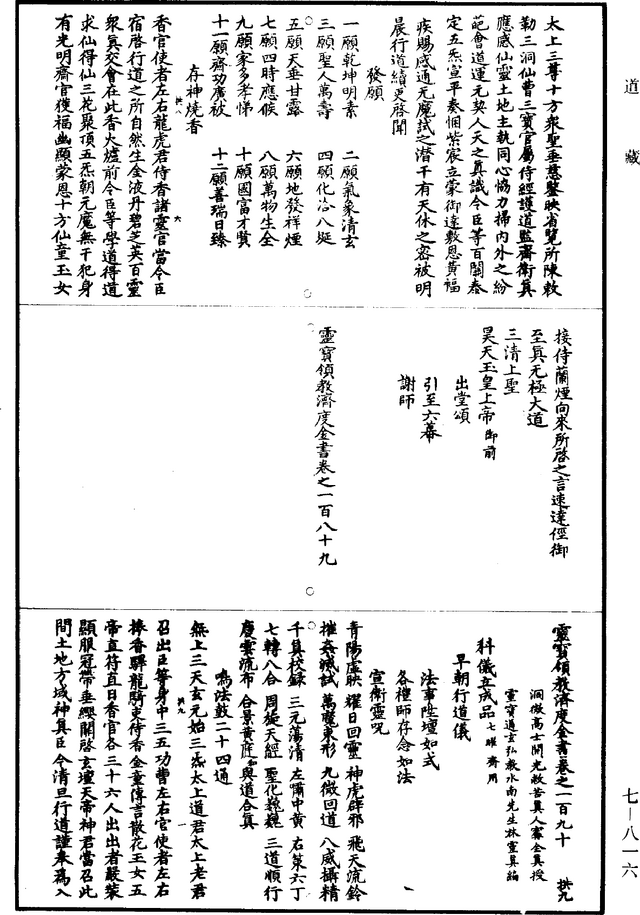 道藏
太上三尊十方衆聖垂慈鑒映省覽所陳敕
勒三洞仙曹三寶官屬侍經護道監齋衛真
應感仙靈土地主執同心恊力掃內外之紛
葩會道運元契人天之真識令臣等百關泰
定五炁宣平奏悃紫宸立蒙御達敷恩黄福
疾賜感通无魔試之潜干有天休之密被明
晨行道續更啓聞
發願
一願乾坤明素　二願氣象清玄
三願聖人萬壽　四願化洽八埏
五願天垂甘露　六願地發祥煙
七願四時應候　八願萬物生全
九願家多孝悌　十願國富才賢
十一願齋功廣被　十二願善瑞日臻
存神燒香
香官使者左右龍虎君侍香諸靈官當令臣
宿啓行道之所自然生金液丹碧芝英百靈
衆真交會在此香火爐前令臣等學道得道
求仙得仙三花聚頂五炁朝元魔無干犯身
有光明齋官獲福幽顯蒙恩十方仙童玉女
拱八
六
接侍蘭煙向來所啓之言速達徑御
至真无極大道
三清上聖
昊天玉皇上帝御前
出堂頌
引至六幕
謝師
靈寶領教濟度金書卷之一百八十九
靈寶領教濟度金書卷之一百九十　拱九
洞微高士開光救苦真人寗全真授
靈寶通玄弘教水南先生林靈真編
科儀立成品七曜齋用
早朝行道儀
法事陞壇如式
各禮師存念如法
宣衛靈呪
青陽虛映　耀日回靈　神虎辟邪　飛天流鈴
摧姦滅試　萬魔束形　九微回道　八威攝精
千真校録　三元蕩清　左嘯中黄　右策六丁
七轉八合　周旋天經　聖化巍巍　三道順行
慶雲流布　合景黄庭　與道合真
鳴法鼓二十四通
無上三天玄元始三炁太上道君太上老君
召出臣等身中三五功曹左右官使者左右
捧香驛龍騎吏侍香金童傳言散花玉女五
帝直符直日香官各三十六人出出者嚴裝
顯服冠帶垂纓關啓玄壇天帝神君當召此
間土地方域神真臣今清旦行道謹奉爲入
拱九
一
七—八一六